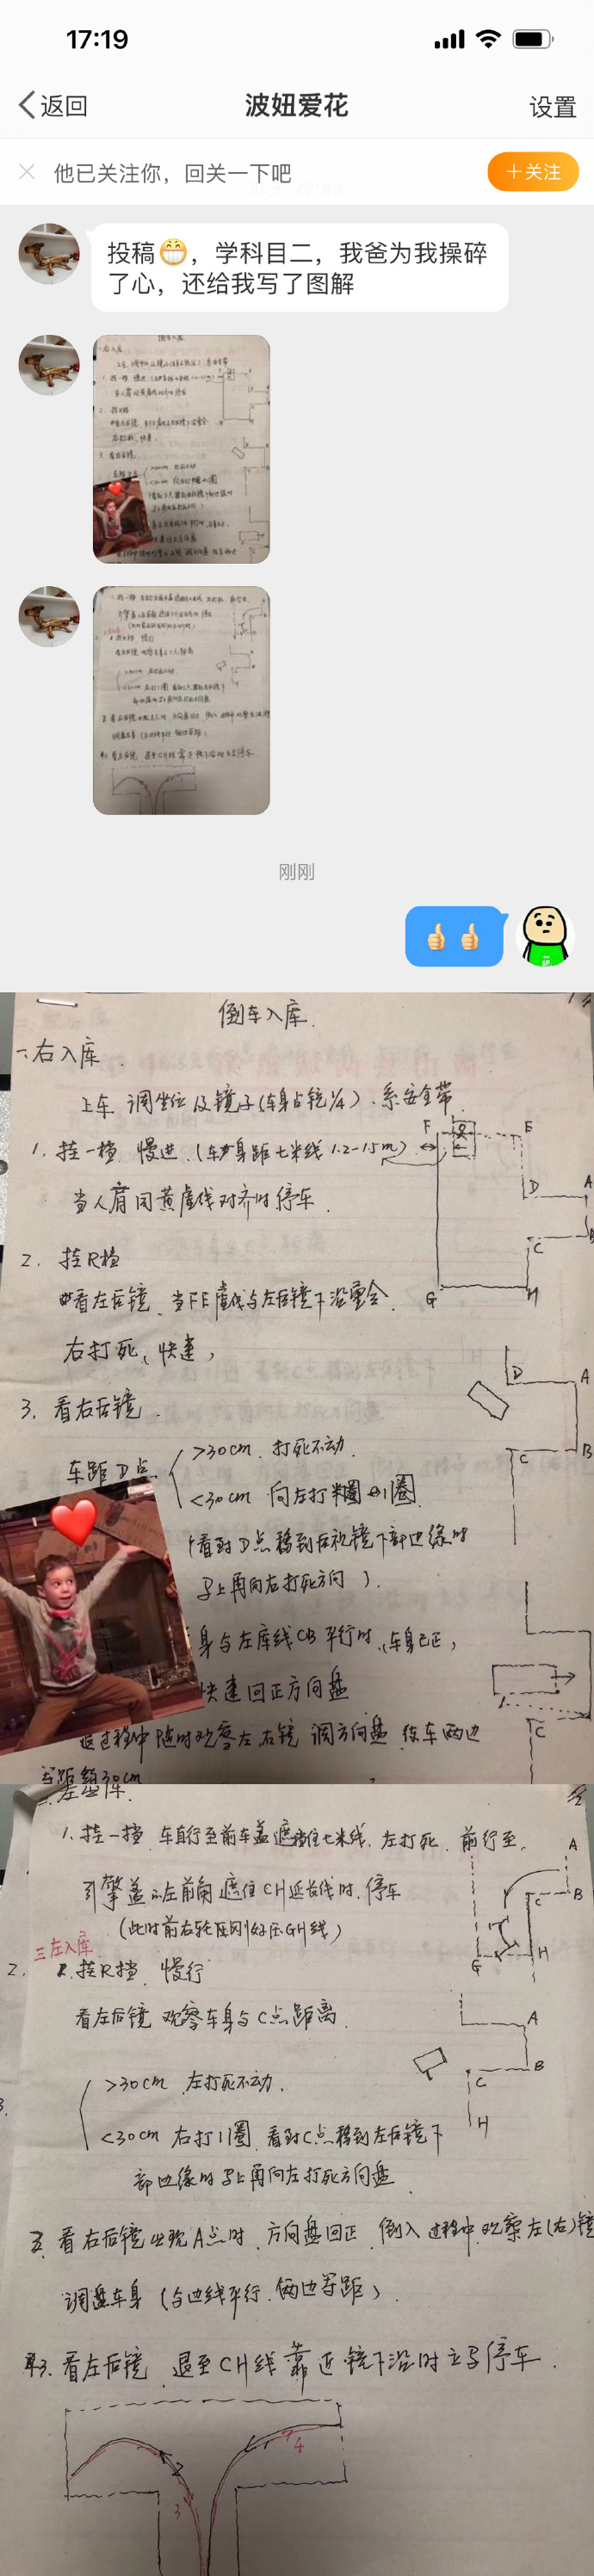 17:19
返回
波妞爱花
设置
他已关注你，回关一下吧
+关注
投稿😁，学科目二，我爸为我操碎
了心，还给我写了图解
刚刚
👍👍
倒车入库.
一、右入库.
上车 调坐位及镜子(车身占镜1/4)、系安全带
1. 挂一档 慢进.(车身距七米线1.2-1.5m)
当人肩同黄虚线对齐时停车.
F
E
D
A
B
C
G
H
2. 挂R档
看左后镜、当FE虚线与左后镜下沿重合.
右打死、快速,
3. 看右后镜.
车距D点
>30cm. 打死不动.
<30cm 向左打半圈
1圈
(看到D点移到后视镜下部边缘时
马上再向右打死方向).
D
A
B
C
身与左库线CB平行时、车身已正,
快速回正方向盘
过程中随时观察左、右镜 调方向盘 使车两边
C
1. 挂一挡 车直行至前车盖遮挡住七米线. 左打死. 前行至.
引擎盖
左前角遮住CH延长线时.停车
(此时前右轮
压GH线)
三左入库.
A
B
C
G
H
2. 挂R挡. 慢行
看左后镜 观察车身与C点距离.
>30cm 左打死不动.
<30cm 右打1圈 看到C点移到左后镜下
部边缘时马上再向左打死方向盘
A
B
C
H
看右后镜出现A点时、方向盘回正. 倒入过程中.观察左(右)镜
调整车身 (与边线平行.俩边等距).
3. 看左后镜. 退至CH线靠近镜下沿时立马停车.
2
3
4